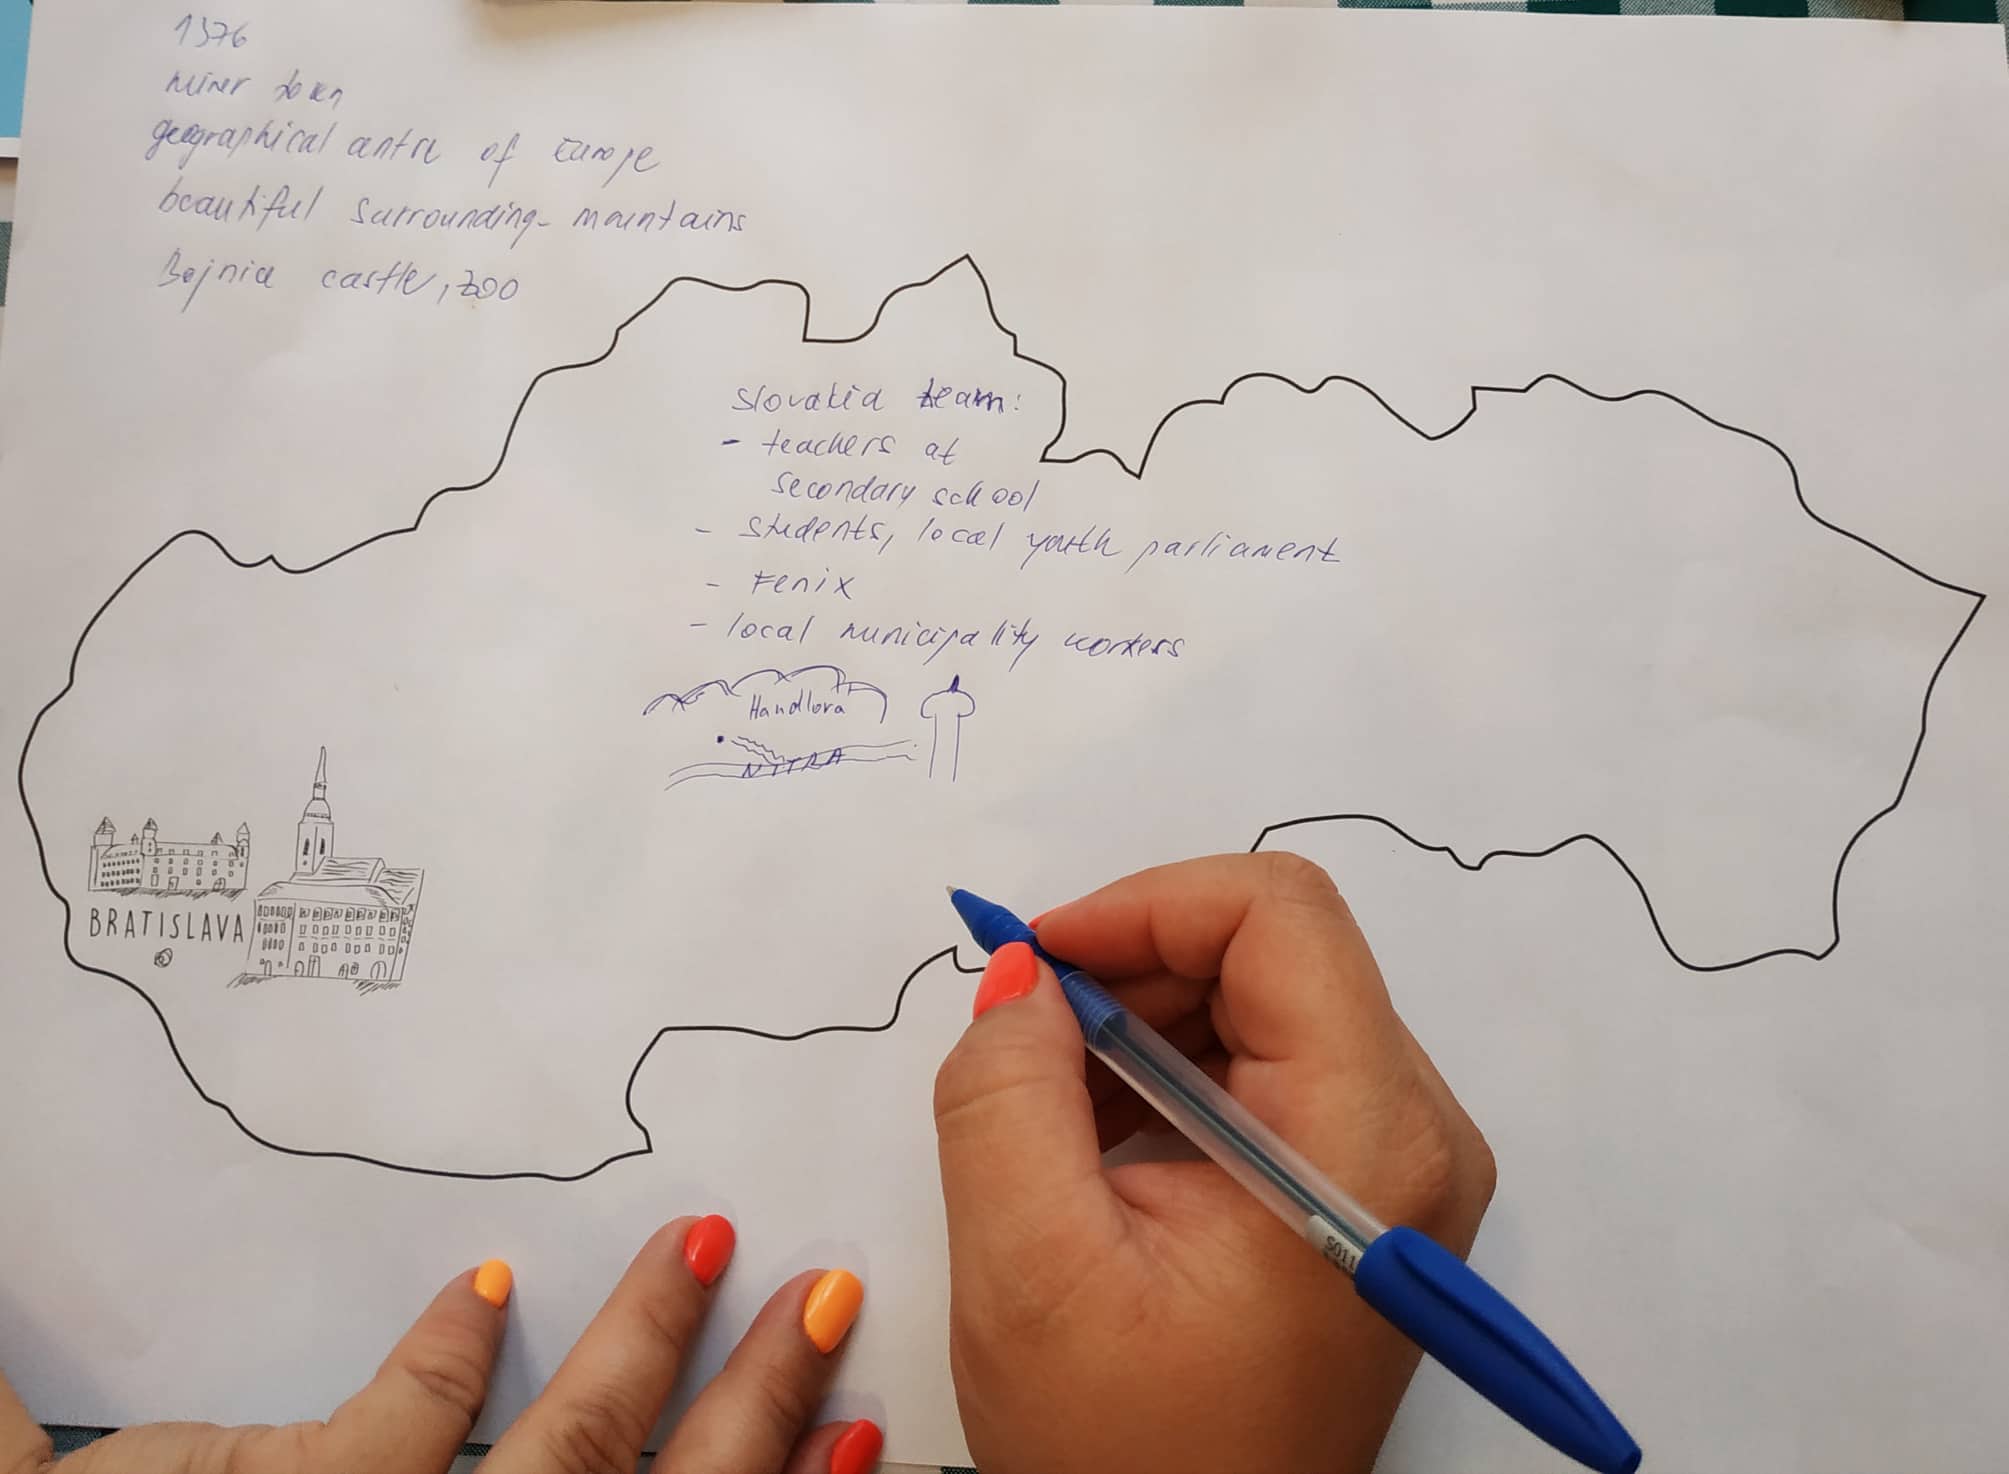 1376
miner town
geographical centre of Europe
beautiful surrounding - mountains
Bojnice castle, zoo
Slovakia team:
- teachers at
secondary school
- students, local youth parliament
- Fenix
- local municipality workers
Handlova
NITRA
BRATISLAVA
S011